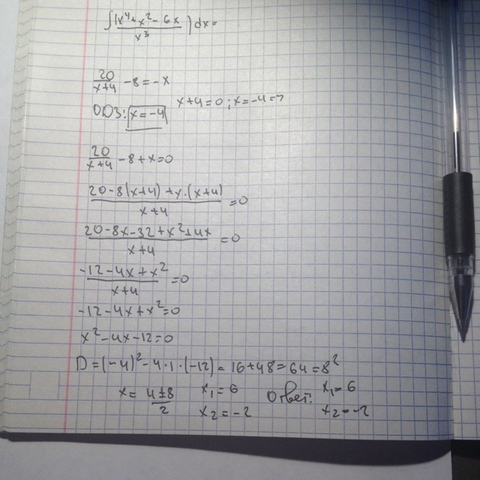 ∫(x⁴+x²-6x / x³)dx=
20/(x+4) -8=-x
ОДЗ: x=-4 x+4=0; x=-4=>
20/(x+4) -8+x=0
(20-8(x+4)+x·(x+4))/(x+4) =0
(20-8x-32+x²+4x)/(x+4) =0
(-12-4x+x²)/(x+4) =0
-12-4x+x²=0
x²-4x-12=0
D=(-4)²-4·1·(-12)=16+48=64=8²
x=(4±8)/2 x₁=6 Ответ: x₁=6
x₂=-2 x₂=-2